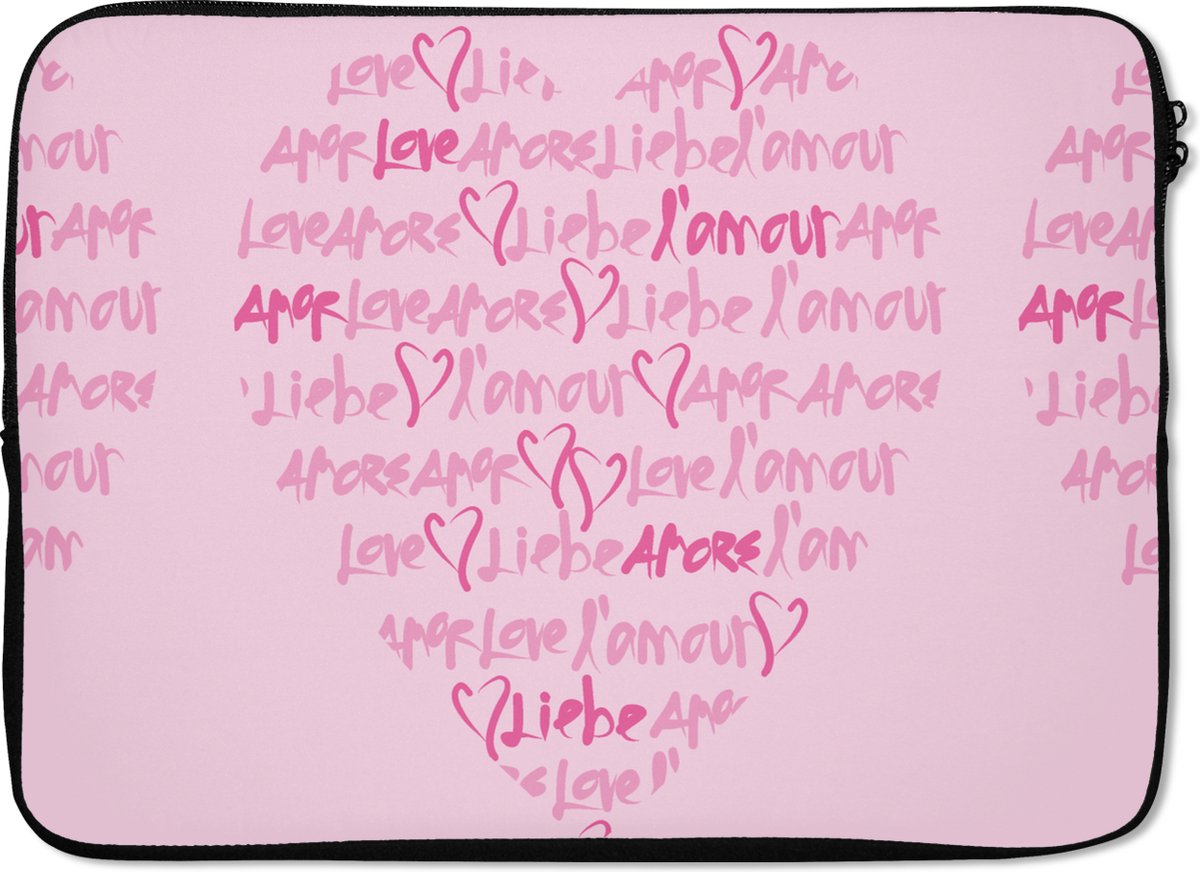 Love Lie AMOR AMO
AMOR Love AMORE Liebe l'amour AMOR
mour
Love AMORE Liebe l'amour AMOR Love AM
ur AMOR
AMOR Love AMORE Liebe l'amour AMOR L
amour
Liebe l'amour AMOR AMORE Lieb
AMORE
AMORE AMOR Love l'amour AMO
mour
Love Liebe AMORE l'am Lo
am
AMOR Love l'amour
Liebe AMO
Love l'